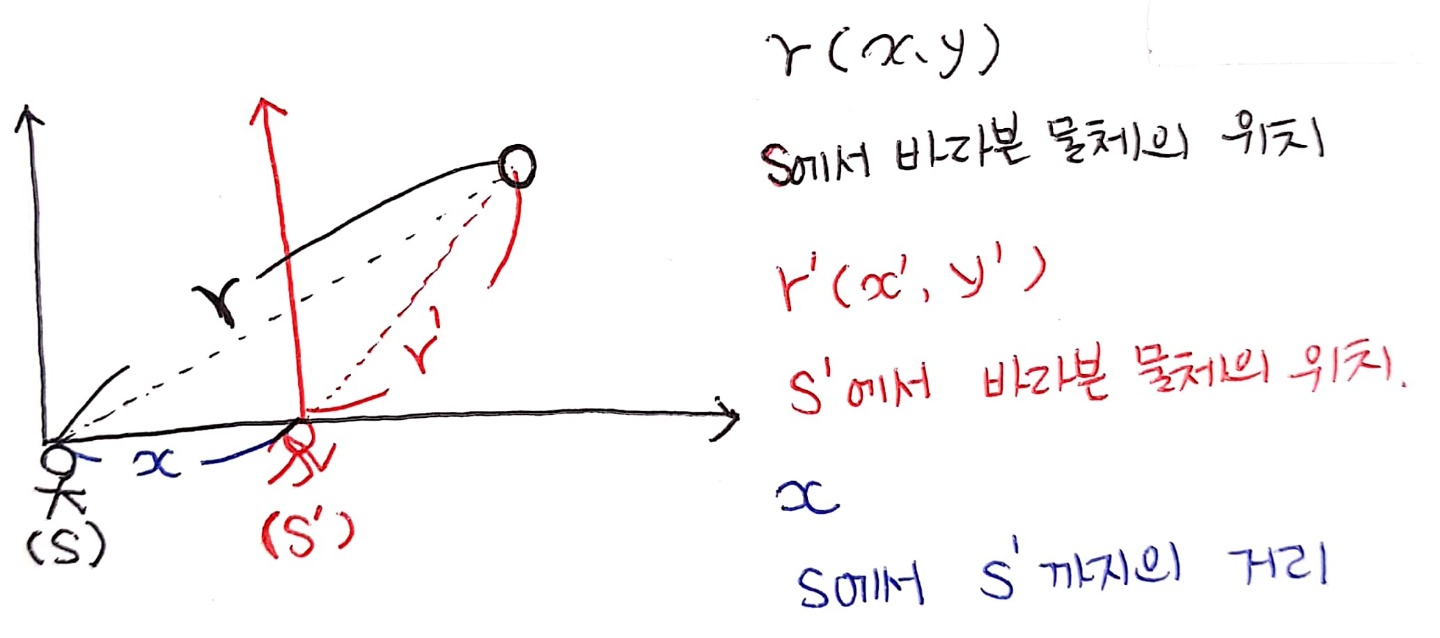 r(x、y)
S에서 바라본 물체의 위치
r'(x', y')
S'에서 바라본 물체의 위치.
x
S에서 S'까지의 거리
r
r'
x
(S)
(S')